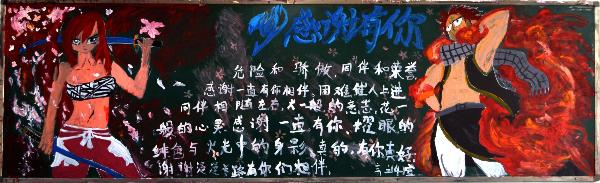 感谢有你
危险和骄傲,同伴和荣誉
感谢一直有你相伴,困难健人上进
同伴相随左右,火一般的意志,花一
般的心灵感谢一直有你,耀眼的
绯色与火光中的身影,真的,有你真好
谢谢这是路有你们相伴.